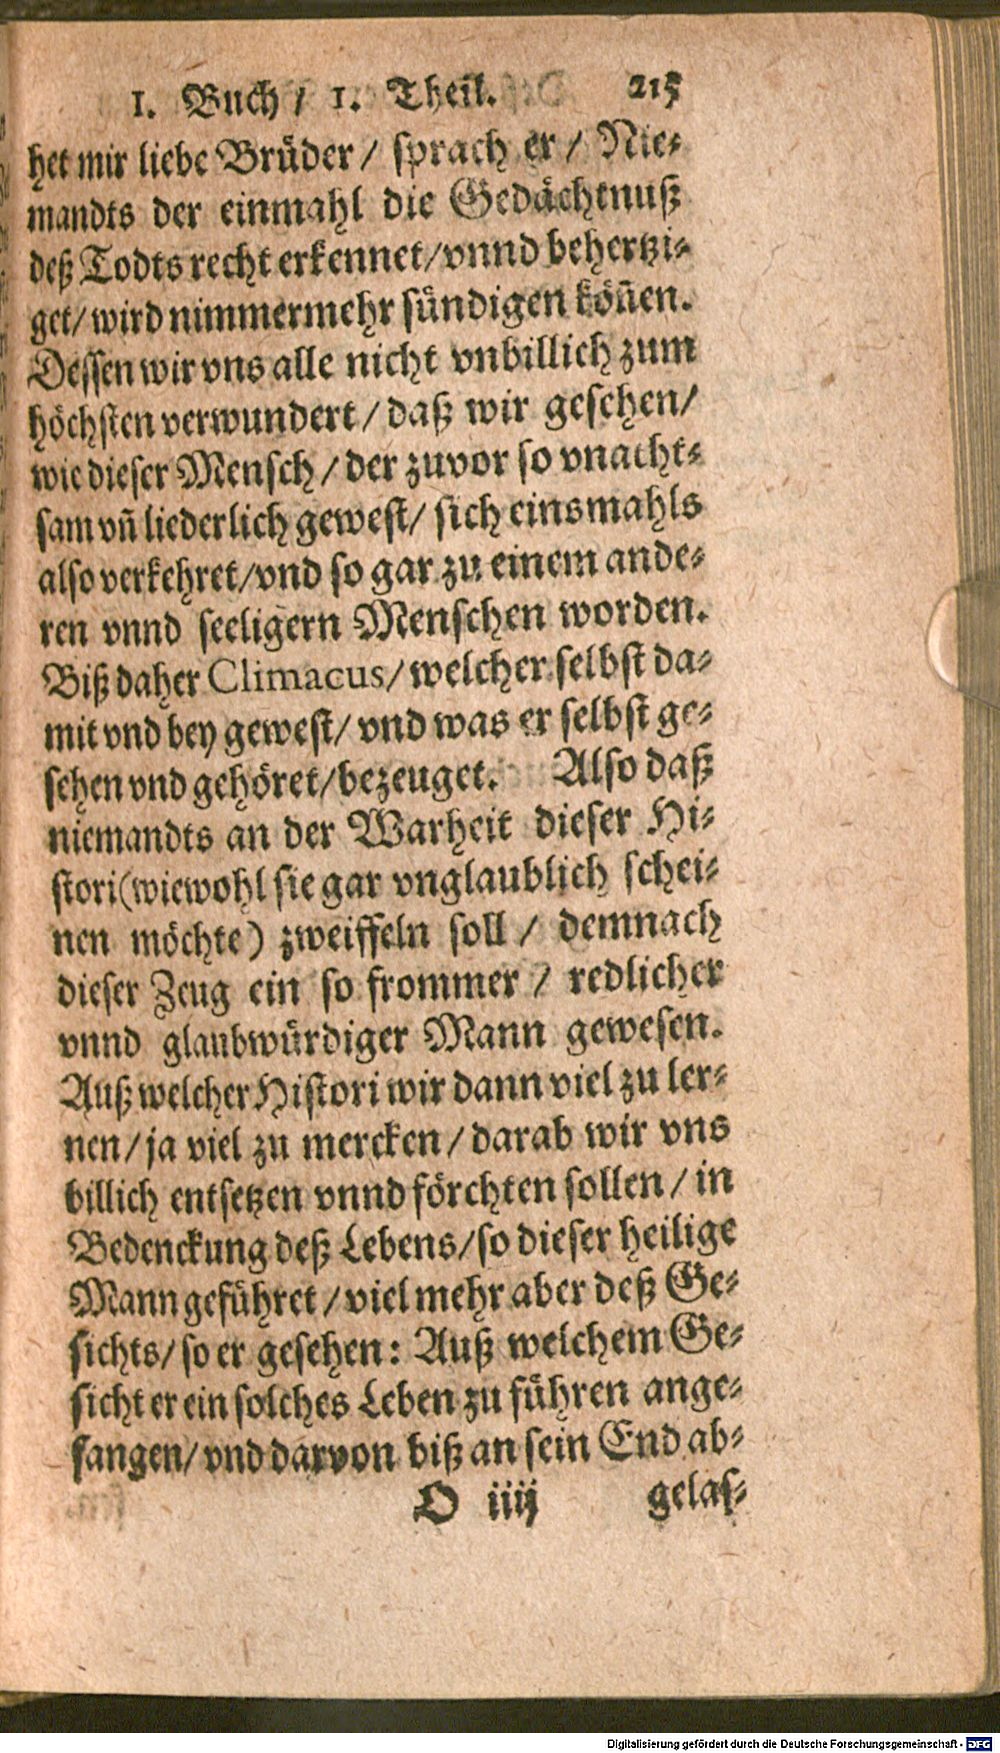 1. Buch / 1. Theil. 215
het mir liebe Brüder / sprach er / Nie-
mandts der einmahl die Gedächtnuß
deß Todts recht erkennet/vnnd behertzi-
get/ wird nimmermehr sündigen köñen.
Dessen wir vns alle nicht vnbillich zum
höchsten verwundert / daß wir gesehen/
wie dieser Mensch / der zuvor so vnacht-
sam vñ liederlich gewest/ sich einsmahls
also verkehret/vnd so gar zu einem ande-
ren vnnd seeligern Menschen worden.
Biß daher Climacus/ welcher selbst da-
mit vnd bey gewest/ vnd was er selbst ge-
sehen vnd gehöret/bezeuget. Also daß
niemandts an der Warheit dieser Hi-
stori(wiewohl sie gar vnglaublich schei-
nen möchte) zweiffeln soll / demnach
dieser Zeug ein so frommer / redlicher
vnnd glaubwürdiger Mann gewesen.
Auß welcher Histori wir dann viel zu ler-
nen/ ja viel zu mercken / darab wir vns
billich entsetzen vnnd förchten sollen / in
Bedenckung deß Lebens/so dieser heilige
Mann geführet / viel mehr aber deß Ge-
sichts/ so er gesehen: Auß welchem Ge-
sicht er ein solches Leben zu führen ange-
fangen/ vnd darvon biß an sein End ab-
O iiij gelas-
Digitalisierung gefördert durch die Deutsche Forschungsgemeinschaft - DFG